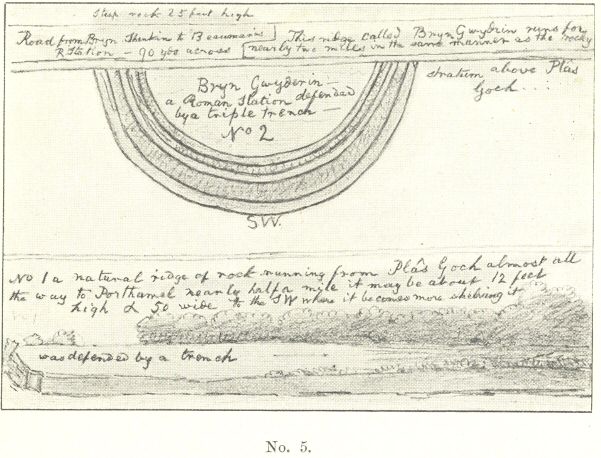 Steep rock 25 feet high
Road from Bryn Shenkin to Beaumaris
R Station — 90 yds across
This ridge called Bryn Gwydrin runs for
nearly two miles in the same manner as the rocky
stratum above Plâs
Goch...
Bryn Gwyderin —
a Roman Station defended
by a triple trench —
No 2
SW.
No 1 a natural ridge of rock running from Plâs Goch almost all
the way to Porthamel nearly half a mile it may be about 12 feet
high & 50 wide to the SW where it becomes more shelving it
was defended by a trench
No. 5.